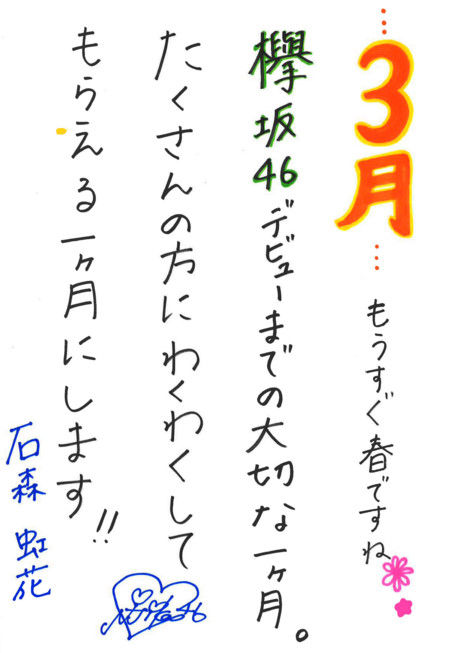 …3月… もうすぐ春ですね
欅坂46デビューまでの大切な一ヶ月。
たくさんの方にわくわくして
もらえる一ヶ月にします!!
石森 虹花